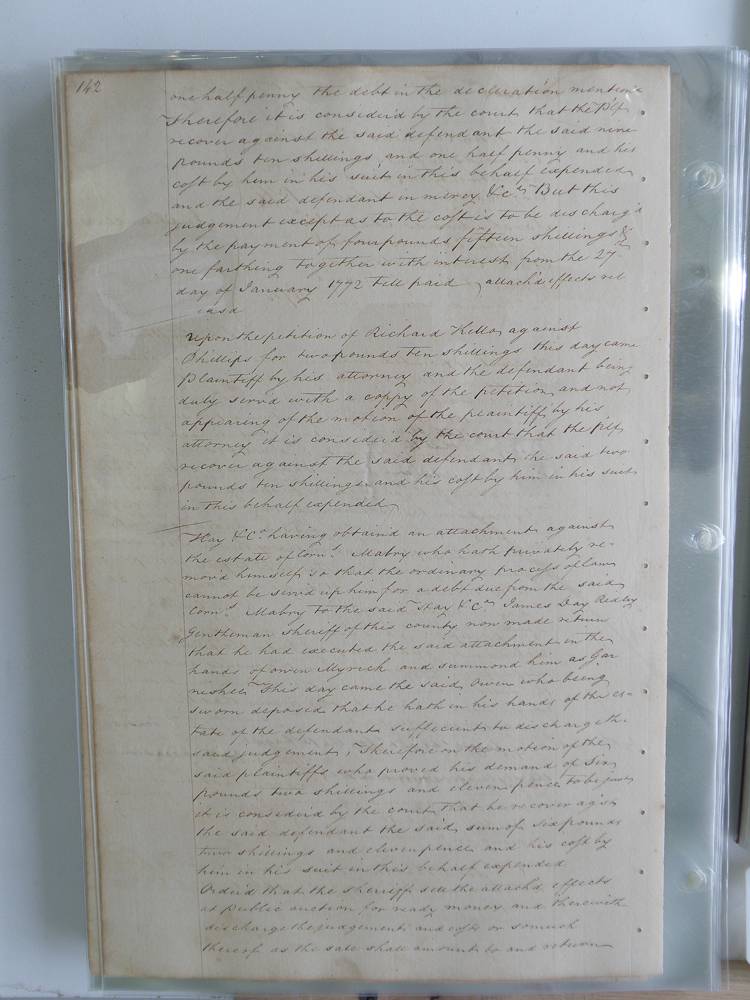 142
one half penny the debt in the declaration mention'd
Therefore it is consider'd by the court that the Pltf
recover against the said defendant the said nine
pounds ten shillings and one half penny and his
cost by him in his suit in this behalf expended
and the said defendant in mercy &c. But this
judgement except as to the cost is to be discharg'd
by the payment of four pounds fifteen shillings &
one farthing together with interest from the 27th
day of January 1772 till paid attach'd effects rel
easd
Upon the petition of Richard Kello against
Phillips for two pounds ten shillings this day came
Plaintiff by his attorney and the defendant being
duly serv'd with a coppy of the petition and not
appearing of the motion of the plaintiff by his
attorney it is consider'd by the court that the pltf
recover against the said defendant the said two
pounds ten shillings and his cost by him in his suit
in this behalf expended
Hay & Co. having obtain'd an attachment against
the estate of Corns. Mabry who hath privately re-
mov'd himself so that the ordinary process of law
cannot be serv'd up him for a debt due from the said
Corns. Mabry to the said Hay & Co. James Day Ridley
Gentleman sheriff of this county now made return
that he had executed the said attachment in the
hands of Owen Myrick and summond him as Gar
nishee This day came the said Owen who being
sworn deposed that he hath in his hands of the es-
tate of the defendant sufficient to discharge the
said judgement, Therefore on the motion of the
said plaintiffs who proved his demand of Six
pounds two shillings and eleven pence to be just
it is consider'd by the court that he recover agst
the said defendant the said sum of six pounds
two shillings and eleven pence and his cost by
him in his suit in this behalf expended
Order'd that the sherriff sell the attach'd effects
at public auction for ready money and therewith
discharge the judgement and costs or so much
thereof as the sale shall amount to and return